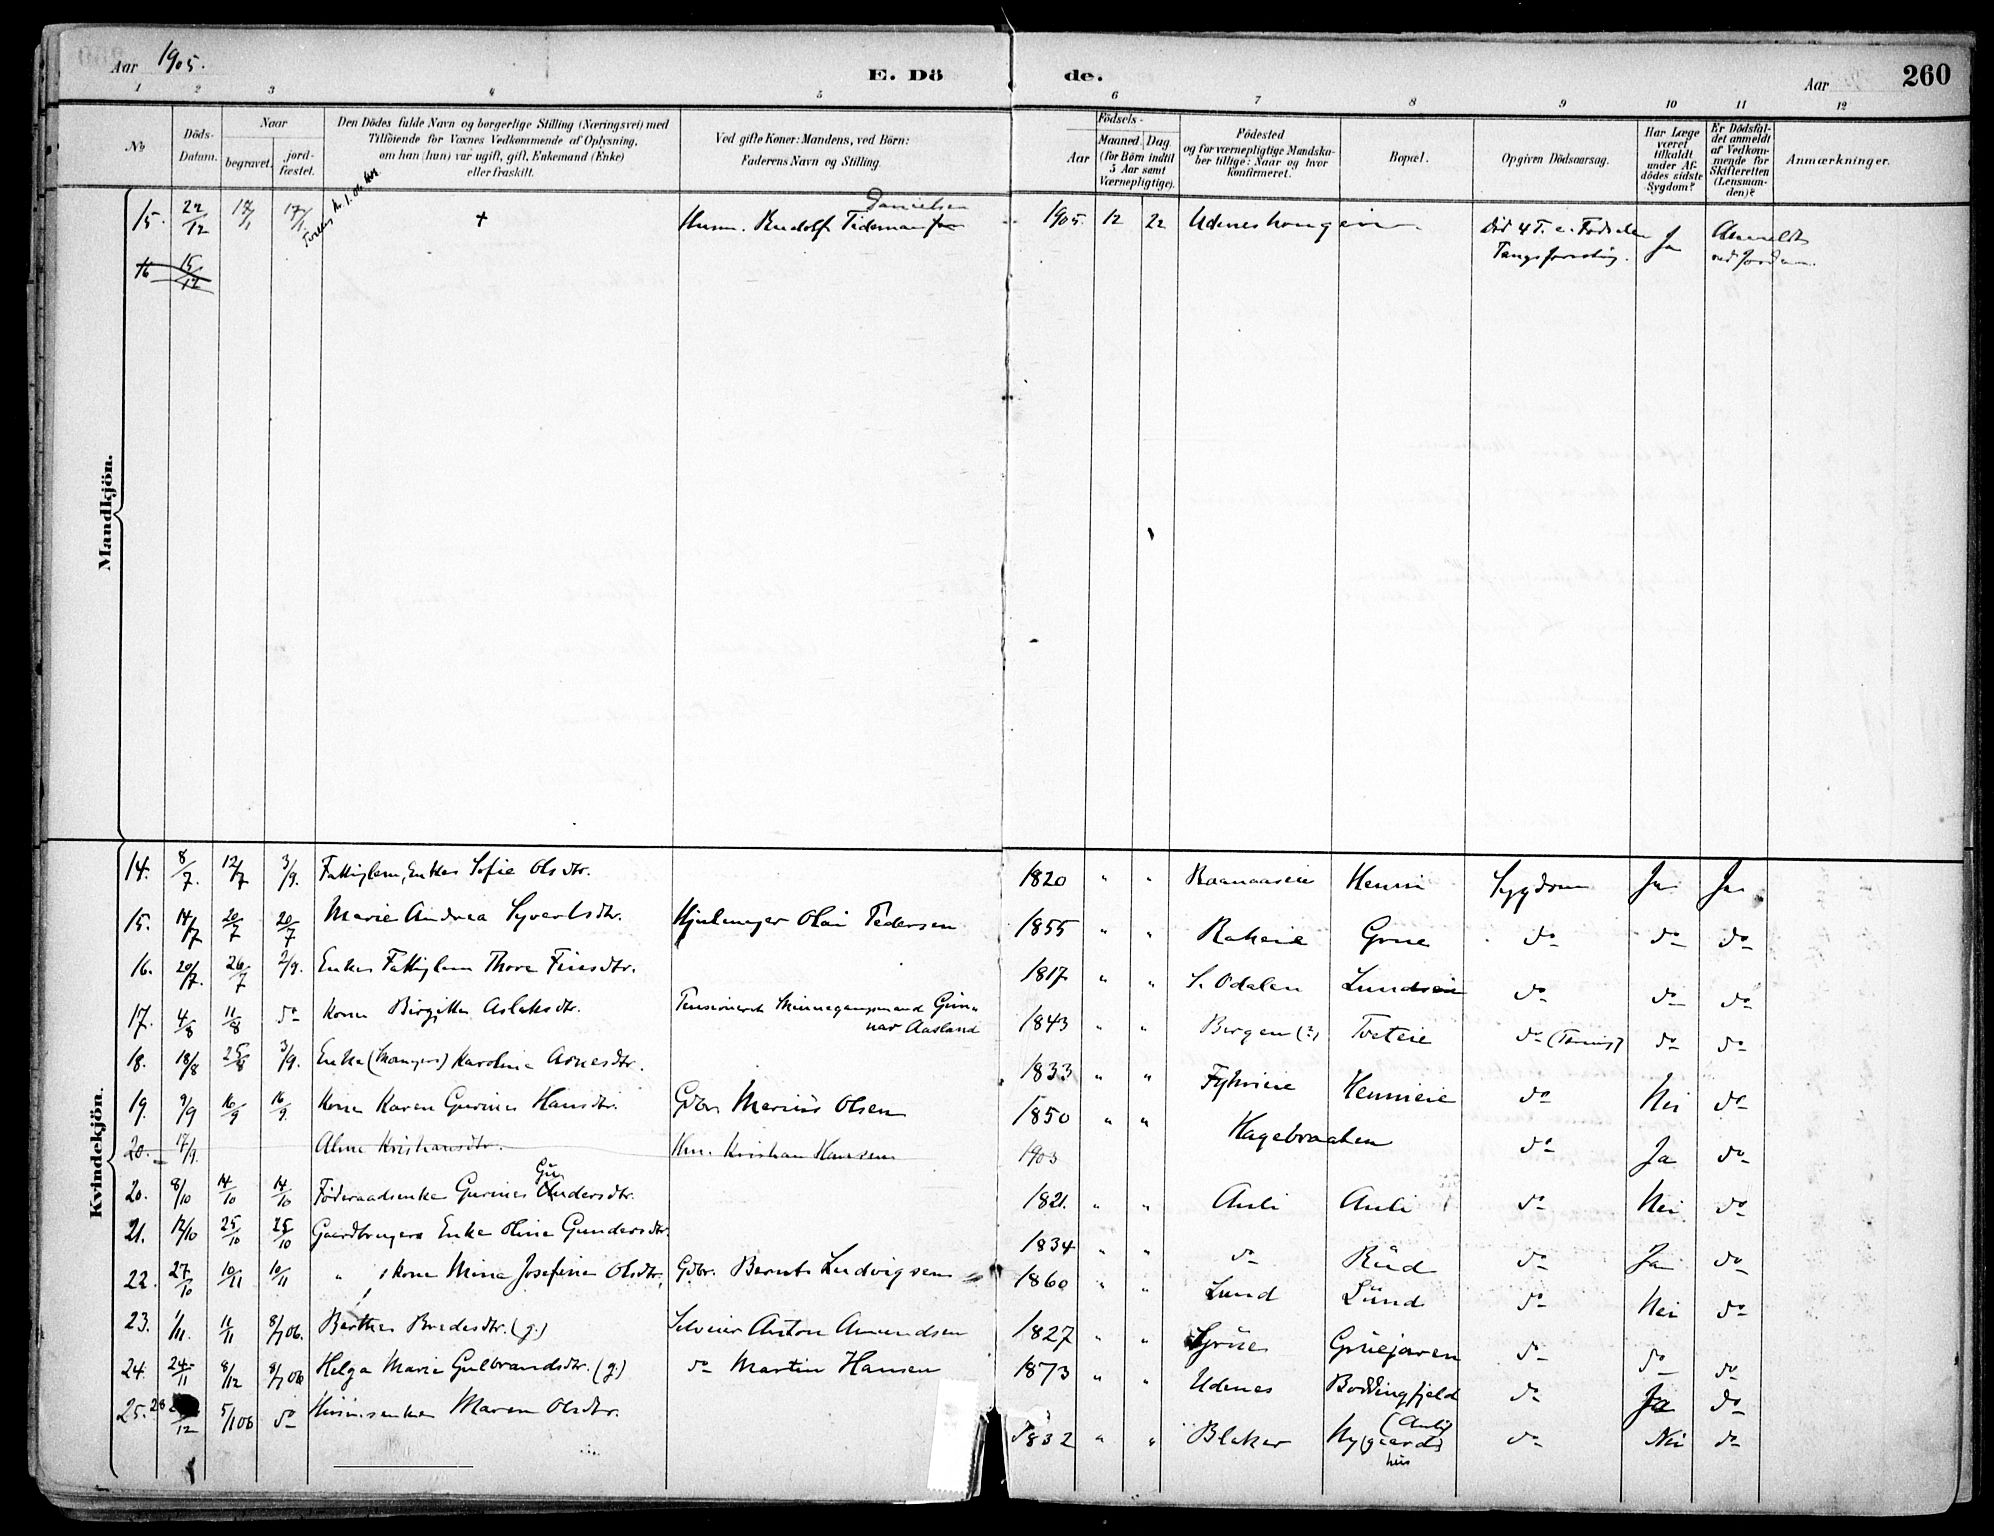 Aar 1905.
E. Döde.
Aar
260
1 2 3 4 5 6 7 8 9 10 11 12
No
Döds-Datum.
Naar
begravet.
jordfæstet.
Den Dödes fulde Navn og borgerlige Stilling (Næringsvei) med
Tilföiende for Voxnes Vedkommende af Oplysning,
om han (hun) var ugift, gift, Enkemand (Enke)
eller fraskilt.
Ved gifte Koner: Mandens, ved Börn:
Faderens Navn og Stilling.
Födsels-
Aar
Maaned. Dag.
(for Börn indtil
5 Aar samt
Værnepligtige).
Födested
og for værnepligtige Mandskaber tillige: Naar og hvor
konfirmeret.
Bopæl.
Opgiven Dödsaarsag.
Har Læge
været
tilkaldt
under Afdödes sidste
Sygdom?
Er Dödsfaldet anmeldt
af Vedkommende for
Skifteretten
(Lensmanden)?
Anmærkninger.
Mandkjön.
15. 22/12 17/1 17/1 + Husm. Rudolf Tideman Danielsen 1905 12 22 Udneshougen Död 4 T. e. Fødselen Ja Anmeldt
16 15/12
Kvindekjön.
14. 8/7. 12/7 3/9. Fattiglem, Enke Sofie Olsdtr. 1820 " " Henni Sygdom Ja Ja
15. 14/7 20/7 20/7 Marie Andrea Syvertsdtr. Hjulmager Olai Pedersen 1855 " " Raheie Grue do do do
16. 20/7. 26/7 2/9. Enke Fattiglem Thore 1817 " " S. Odalen Lundseie do do do
17. 4/8 11/8 do Kone Birgitte Aslaksdtr. Pensioneret Gunnar Aasland 1843 " " Bergen (?) Tveteie do do do
18. 18/8 25/8 3/9. Enke Karoline Arnesdtr. 1833 " " Hennieie do Nei do
19. 9/9 16/9 16/9. Kone Karen Gurine Hansdtr. Gdbr. Marius Olsen 1850 " " Hagebraaten do Ja do
20. 17/9. Alma Kristiansdtr. Hm. Kristian Hansen 1903
20. 8/10 14/10 14/10 Föderaadsenke Gurine Gundersdtr. 1821. " " Auli Auli do Nei do
21. 17/10 25/10 25/10 Gaardbrugers Enke Oline Gundersdtr. 1834 " " do Rud do Ja do
22. 27/10 10/11 10/11 " Kone Mina Josefine Olsdtr. Gdbr. Bernt Ludvigsen 1860 " " Lund Lund do Nei do
23. 1/11. 11/11 8/1 06. Berthe Bredesdtr. (g.) Selveier Anton Amundsen 1827 " " Grue do do do
24. 24/11 8/12 8/1 06 Helga Marie Gulbrandsdtr. (g.) do Martin Hansen 1873 " " Udenes Boddingfjeld do Ja do
25. 28/12 5/1 06 do Husmsenke Maren Olsdtr. 1832 " " Blaker Nygaards hus (Auli) do Nei do